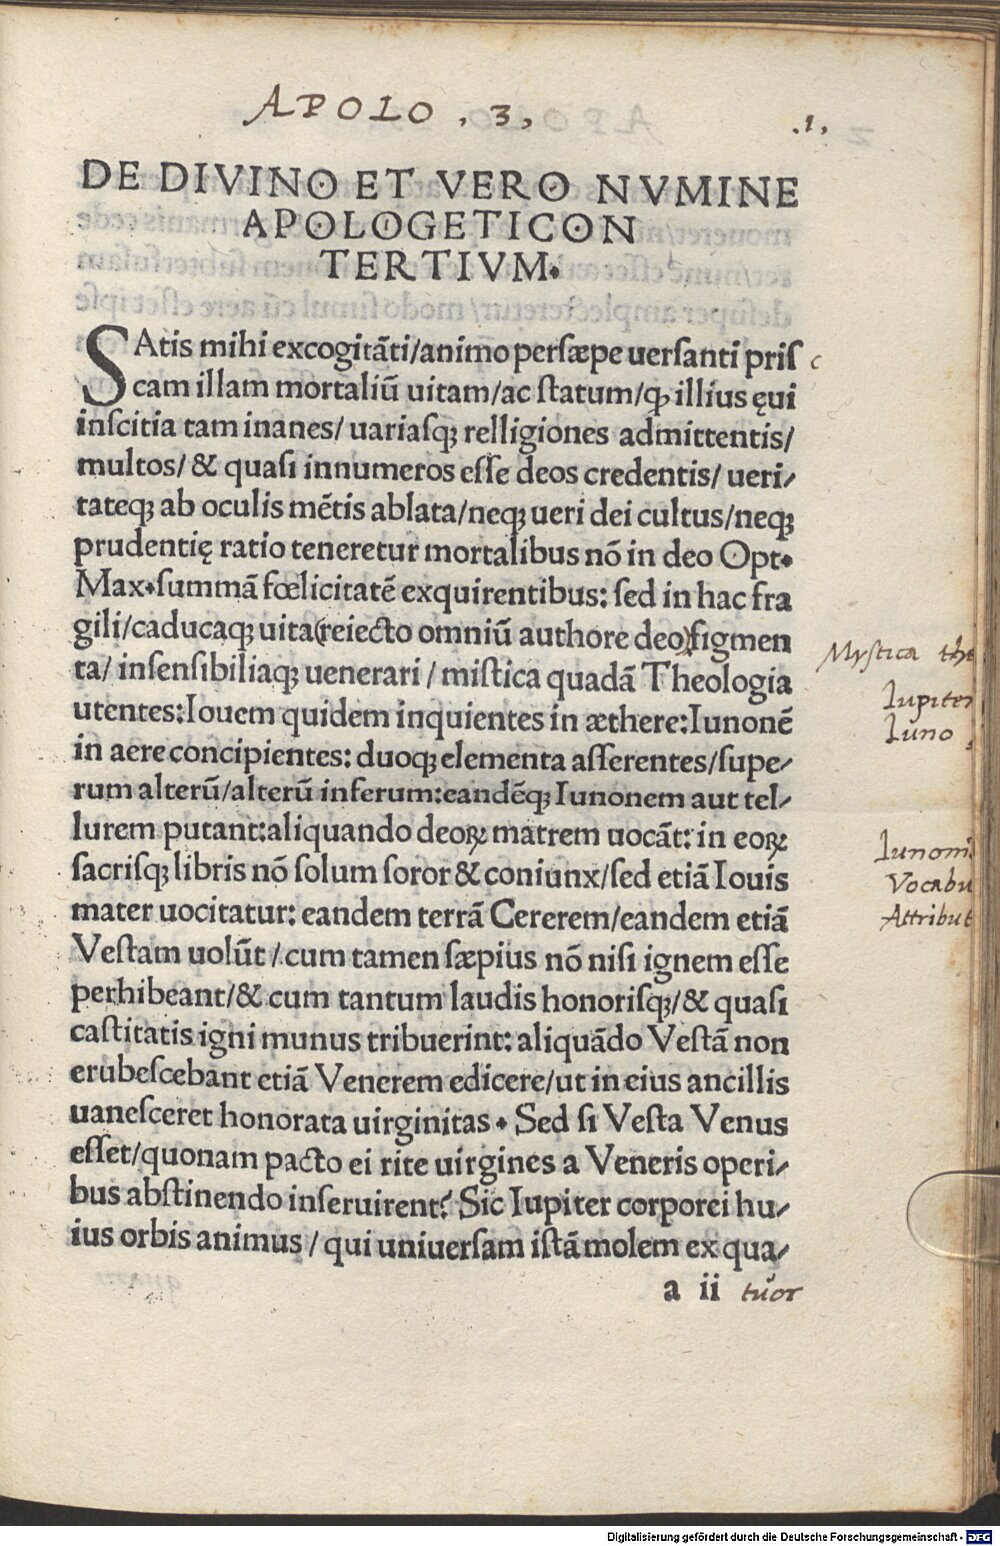 APOLO . 3,
.1,
DE DIVINO ET VERO NVMINE
APOLOGETICON
TERTIVM.
SAtis mihi excogitãti/animo persæpe uersanti pris c
cam illam mortaliũ uitam/ac statum/ꝙ illius ęui
inscitia tam inanes/ uariasqꝫ relligiones admittentis/
multos/ & quasi innumeros esse deos credentis/ ueri/
tateqꝫ ab oculis mẽtis ablata/neqꝫ ueri dei cultus/neqꝫ
prudentię ratio teneretur mortalibus nõ in deo Opt.
Max.summã fœlicitatẽ exquirentibus: sed in hac fra
gili/caducaqꝫ uita(reiecto omniũ authore deo)figmen
ta/ insensibiliaqꝫ uenerari / mistica quadã Theologia
utentes:Iouem quidem inquientes in æthere:Iunonẽ
in aere concipientes: duoqꝫ elementa asserentes/supe/
rum alterũ/alterũ inferum:eandẽqꝫ Iunonem aut tel/
lurem putant:aliquando deoꝝ matrem uocãt: in eoꝝ
sacrisqꝫ libris nõ solum soror & coniunx/sed etiã Iouis
mater uocitatur: eandem terrã Cererem/eandem etiã
Vestam uolũt / cum tamen sæpius nõ nisi ignem esse
perhibeant/& cum tantum laudis honorisqꝫ/& quasi
castitatis igni munus tribuerint: aliquãdo Vestã non
erubescebant etiã Venerem edicere/ut in eius ancillis
uanesceret honorata uirginitas . Sed si Vesta Venus
esset/quonam pacto ei rite uirgines a Veneris operi/
bus abstinendo inseruirent? Sic Iupiter corporei hu/
ius orbis animus / qui uniuersam istã molem ex qua/
a ii tuor
Mystica the
Iupiter
Iuno
Iunonis
Vocabu
Attribut
Digitalisierung gefördert durch die Deutsche Forschungsgemeinschaft - DFG